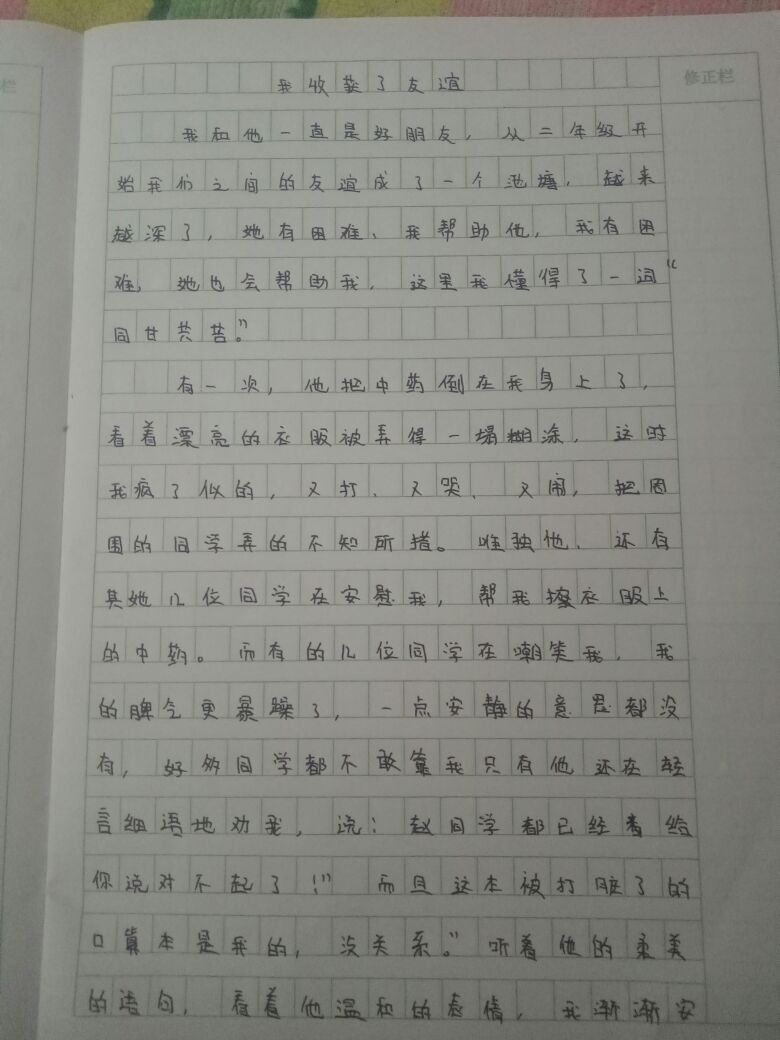 我收获了友谊
修正栏
栏
我和他一直是好朋友，从二年级开
始我们之间的友谊成了一个池塘，越来
越深了，她有困难、我帮助他，我有困
难，她也会帮助我，这里我懂得了一词“
同甘共苦。”
有一次，他把中药倒在我身上了，
看着漂亮的衣服被弄得一塌糊涂，这时
我疯了似的，又打、又哭、又闹，把周
围的同学弄的不知所措。唯独他、还有
其她几位同学在安慰我，帮我擦衣服上
的中药。而有的几位同学在嘲笑我，我
的脾气更暴躁了，一点安静的意思都没
有，好多同学都不敢靠我只有他还在轻
言细语地劝我，说：赵同学都已经看给
你说对不起了！”而且这本被打脏了的
口算本是我的，没关系。”听着他的柔美
的语句，看着他温和的表情，我渐渐安